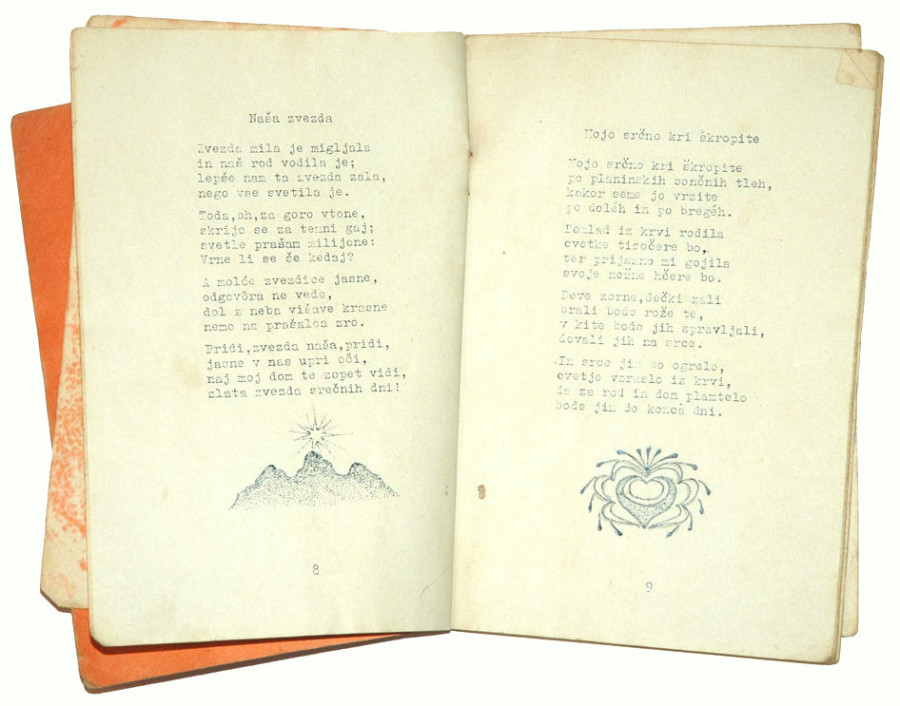 Naša zvezda
Zvezda mila je migljala
in naš rod vodila je;
lepše nam ta zvezda zala,
nego vse svetila je.
Toda,oh,za goro vtone,
skrije se za temni gaj;
svetle prašam milijone:
Vrne li se še kedaj?
A molče zvezdice jasne,
odgovóra ne vedo,
dol z neba višave krasne
nemo na prašalca zro.
Pridi,zvezda naša,pridi,
jasne v nas upri oči,
naj moj dom te zopet vidi,
zlata zvezda srečnih dni!
8
Mojo srčno kri škropite
Mojo srčno kri škropite
po planinskih sončnih tleh,
kakor seme jo vrzite
po doléh in po bregéh.
Pomlad iz krvi rodila
cvetke tisočere bo,
ter prijazno mi gojila
svoje nežne hčere bo.
Deve zorne,dečki zali
brali bodo rože te,
v kite bodo jih spravljali,
devali jih na srce.
In srce jim bo ogrelo,
cvetje vzraslo iz krvi,
da za rod in dom plamtelo
bode jim do konca dni.
9